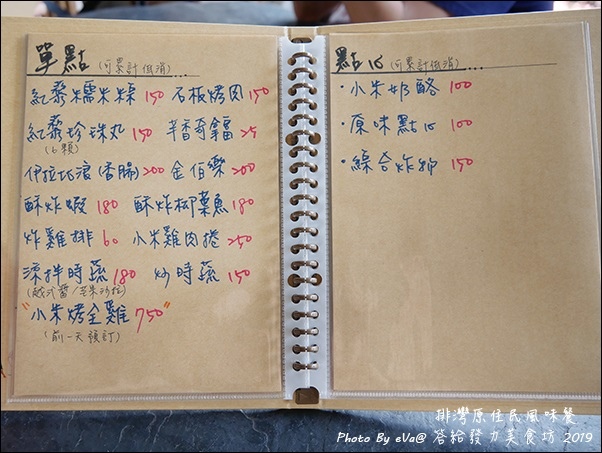 單點(可累計低消)...
紅藜糯米粽 150 石板烤肉 150
紅藜珍珠丸 150 芋香奇拿富 25
(6顆)
伊拉巧浪(香腸) 200 金伯樂 200
酥炸蝦 180 酥炸柳葉魚 180
炸雞排 60 小米雞肉捲 250
涼拌時蔬 180 炒時蔬 150
(越式醬/芒果沙拉)
"小米烤全雞 750"
(前一天預訂)
點心(可累計低消)...
·小米奶酪 100
·原味點心 100
·綜合炸物 150
排灣原住民風味餐
Photo By eVa@ 答給發力美食坊 2019